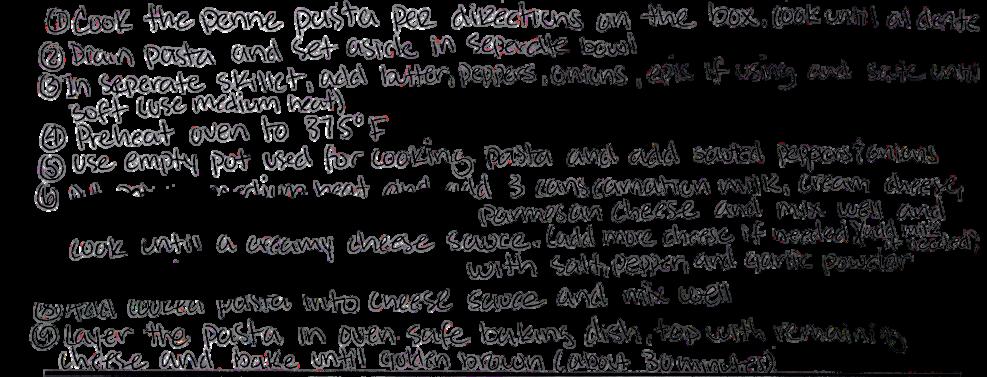 ① Cook the penne pasta per directions on the box. Cook until al dente
② Drain pasta and set aside in seperate bowl
③ In seperate skillet, add butter, peppers, onions, epis if using and saute until
soft (use medium heat)
④ Preheat oven to 375° F
⑤ Use empty pot used for cooking pasta and add sauted peppers & onions
⑥ heat and add 3 cans carnation milk, cream cheese,
parmesan cheese and mix well and
cook until a creamy cheese sauce. (add more cheese if needed)
with salt, pepper, and garlic powder
Add pasta into cheese sauce and mix well
Layer the pasta in oven safe baking dish. top with remaining
cheese and bake until golden brown (about 30 minutes)